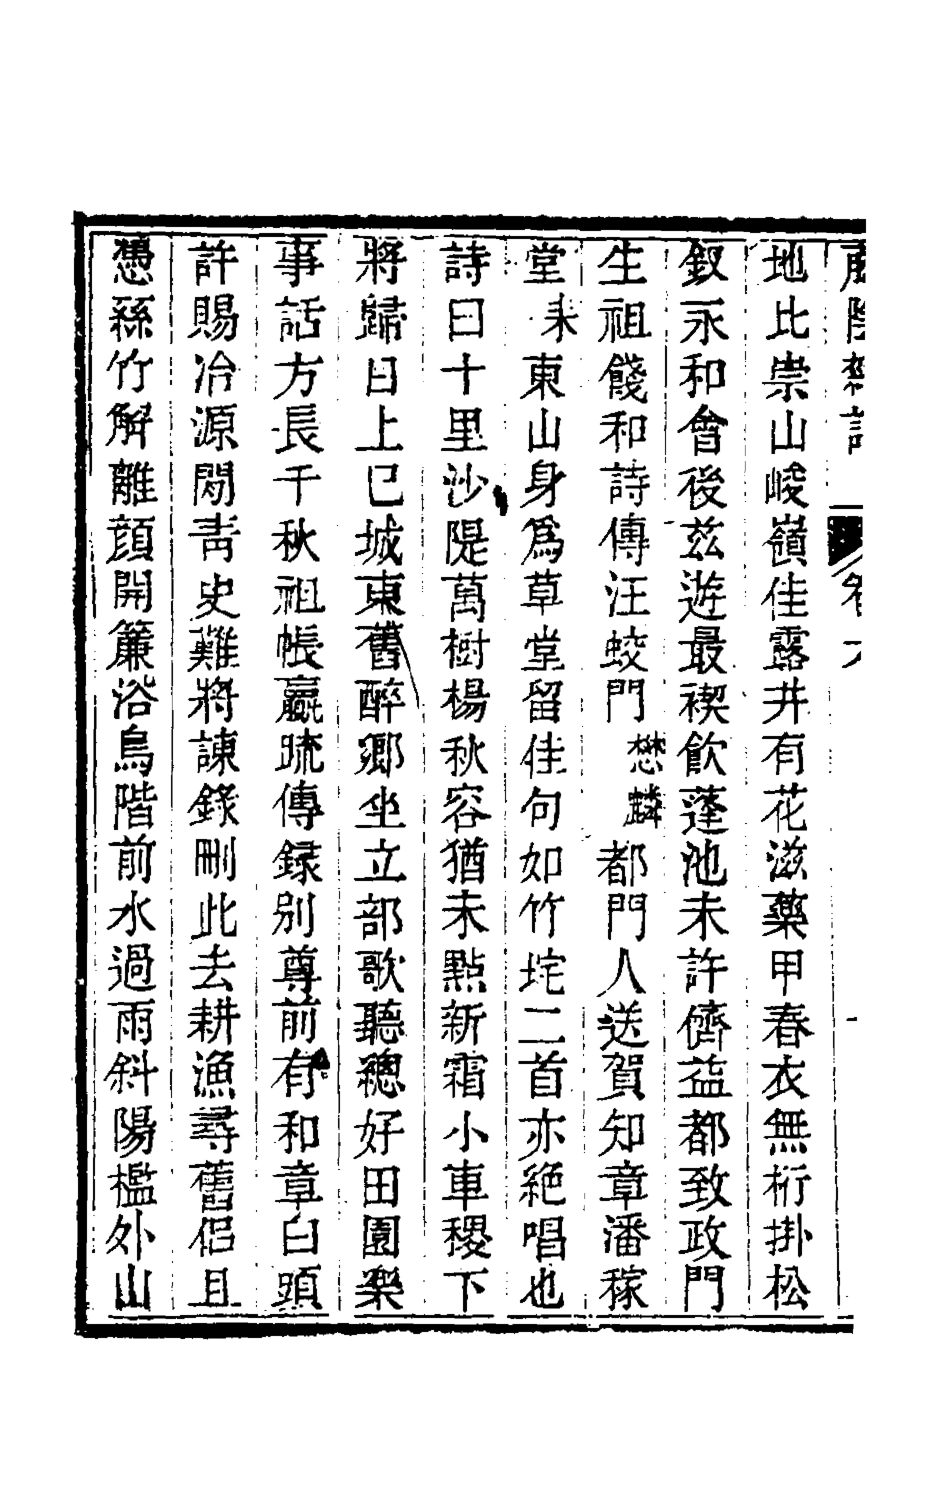 藤陰雜記 卷六
地比崇山峻嶺佳露井有花滋藥甲春衣無桁掛松
釵永和會後茲遊最禊飲蓬池未許儕益都致政門
生祖餞和詩傳汪蛟門懋麟都門人送賀知章潘稼
堂耒東山身爲草堂留佳句如竹垞二首亦絶唱也
詩曰十里沙隄萬樹楊秋容猶未點新霜小車稷下
將歸日上巳城東舊醉鄉坐立部歌聽總好田園樂
事話方長千秋祖帳羸疏傳録别尊前有和章白頭
許賜冶源閒青史難將諫錄刪此去耕漁尋舊侶且
憑絲竹解離顔開簾浴鳥階前水過雨斜陽檻外山